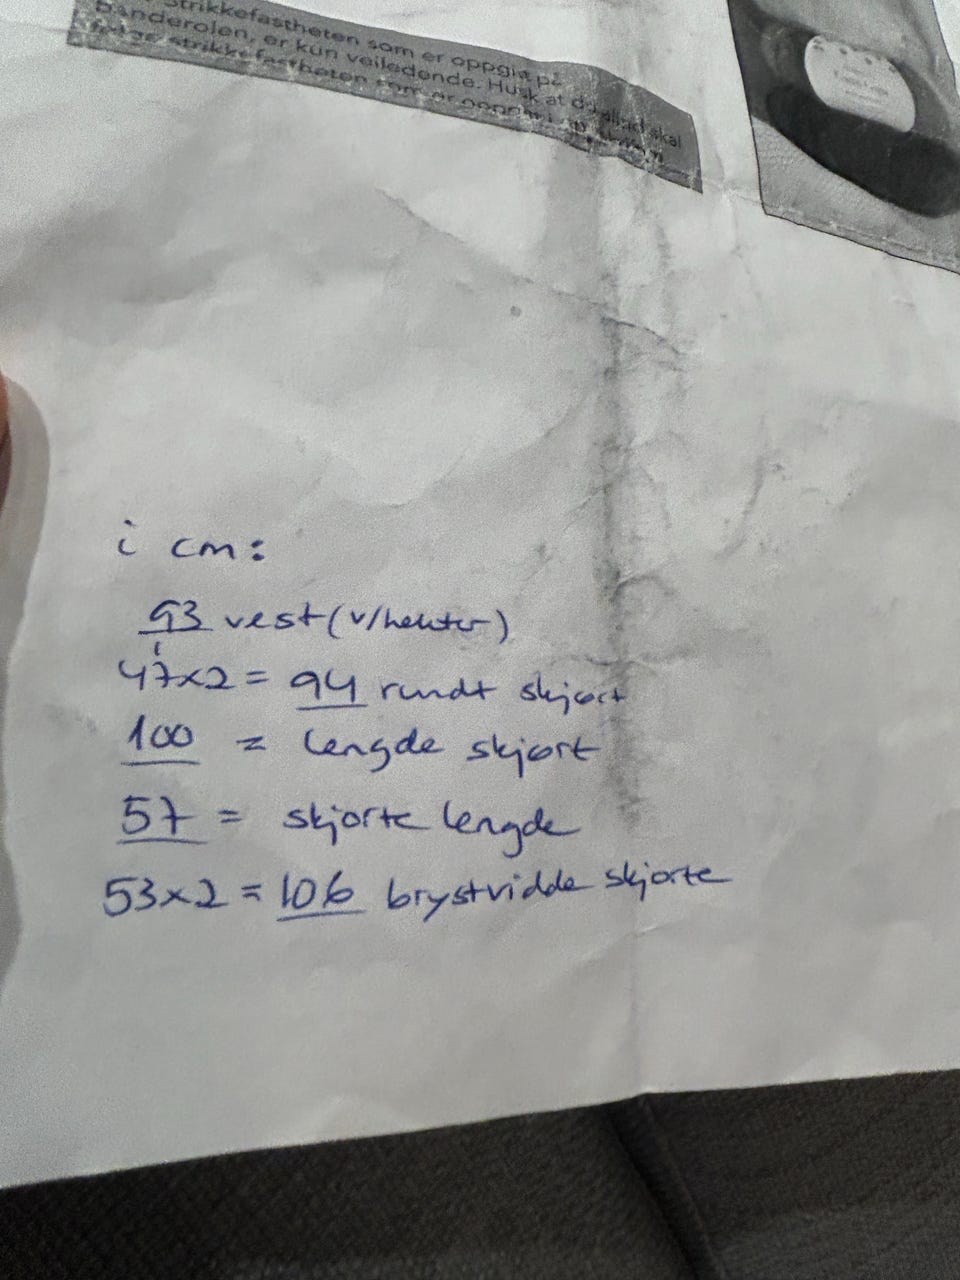 Strikkefastheten som er oppgitt på
banderolen, er kun veiledende. Husk at du alltid skal
følge strikkefastheten som er oppgitt i
i cm:
93 vest (v/hekter)
47x2 = 94 rundt skjørt
100 = lengde skjørt
57 = skjorte lengde
53x2 = 106 brystvidde skjorte